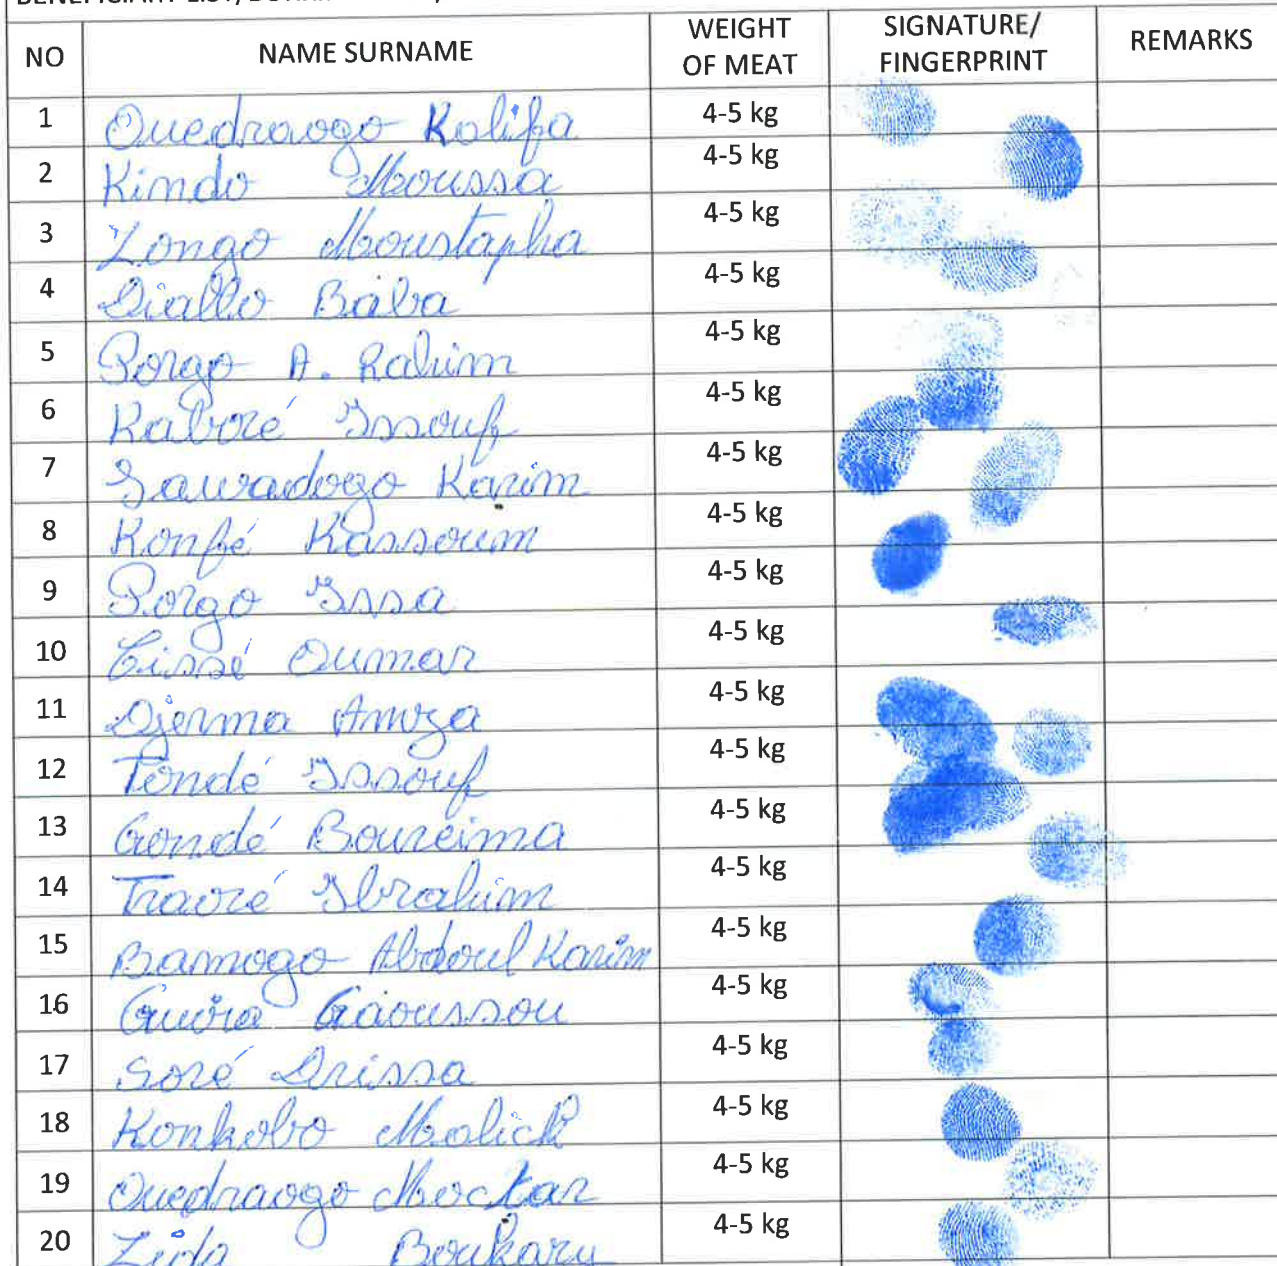 NO NAME SURNAME WEIGHT OF MEAT SIGNATURE/ FINGERPRINT REMARKS
1 Ouedraogo Kalifa 4-5 kg
2 Kindo Moussa 4-5 kg
3 Zongo Moustapha 4-5 kg
4 Diallo Baba 4-5 kg
5 Porgo A. Rahim 4-5 kg
6 Kaboré Issouf 4-5 kg
7 Sawadogo Karim 4-5 kg
8 Konfé Kassoum 4-5 kg
9 Porgo Issa 4-5 kg
10 Cissé Oumar 4-5 kg
11 Djerma Amza 4-5 kg
12 Tondé Issouf 4-5 kg
13 Gondé Boureima 4-5 kg
14 Traoré Ibrahim 4-5 kg
15 Bamogo Abdoul Karim 4-5 kg
16 Guira Gaoussou 4-5 kg
17 Soré Drissa 4-5 kg
18 Konkobo Malick 4-5 kg
19 Ouedraogo Moctar 4-5 kg
20 Zida Boukary 4-5 kg